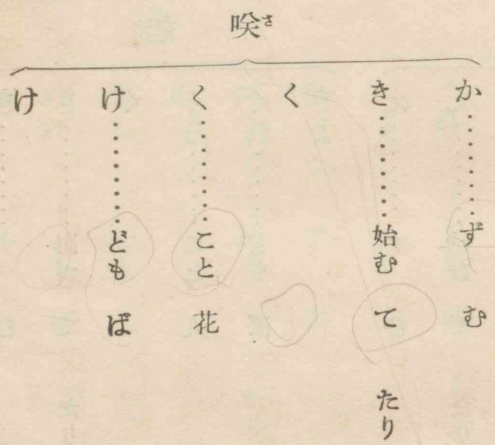 咲さ
か………ず む
き………始む て たり
く
く………こと 花
け………ども ば
け